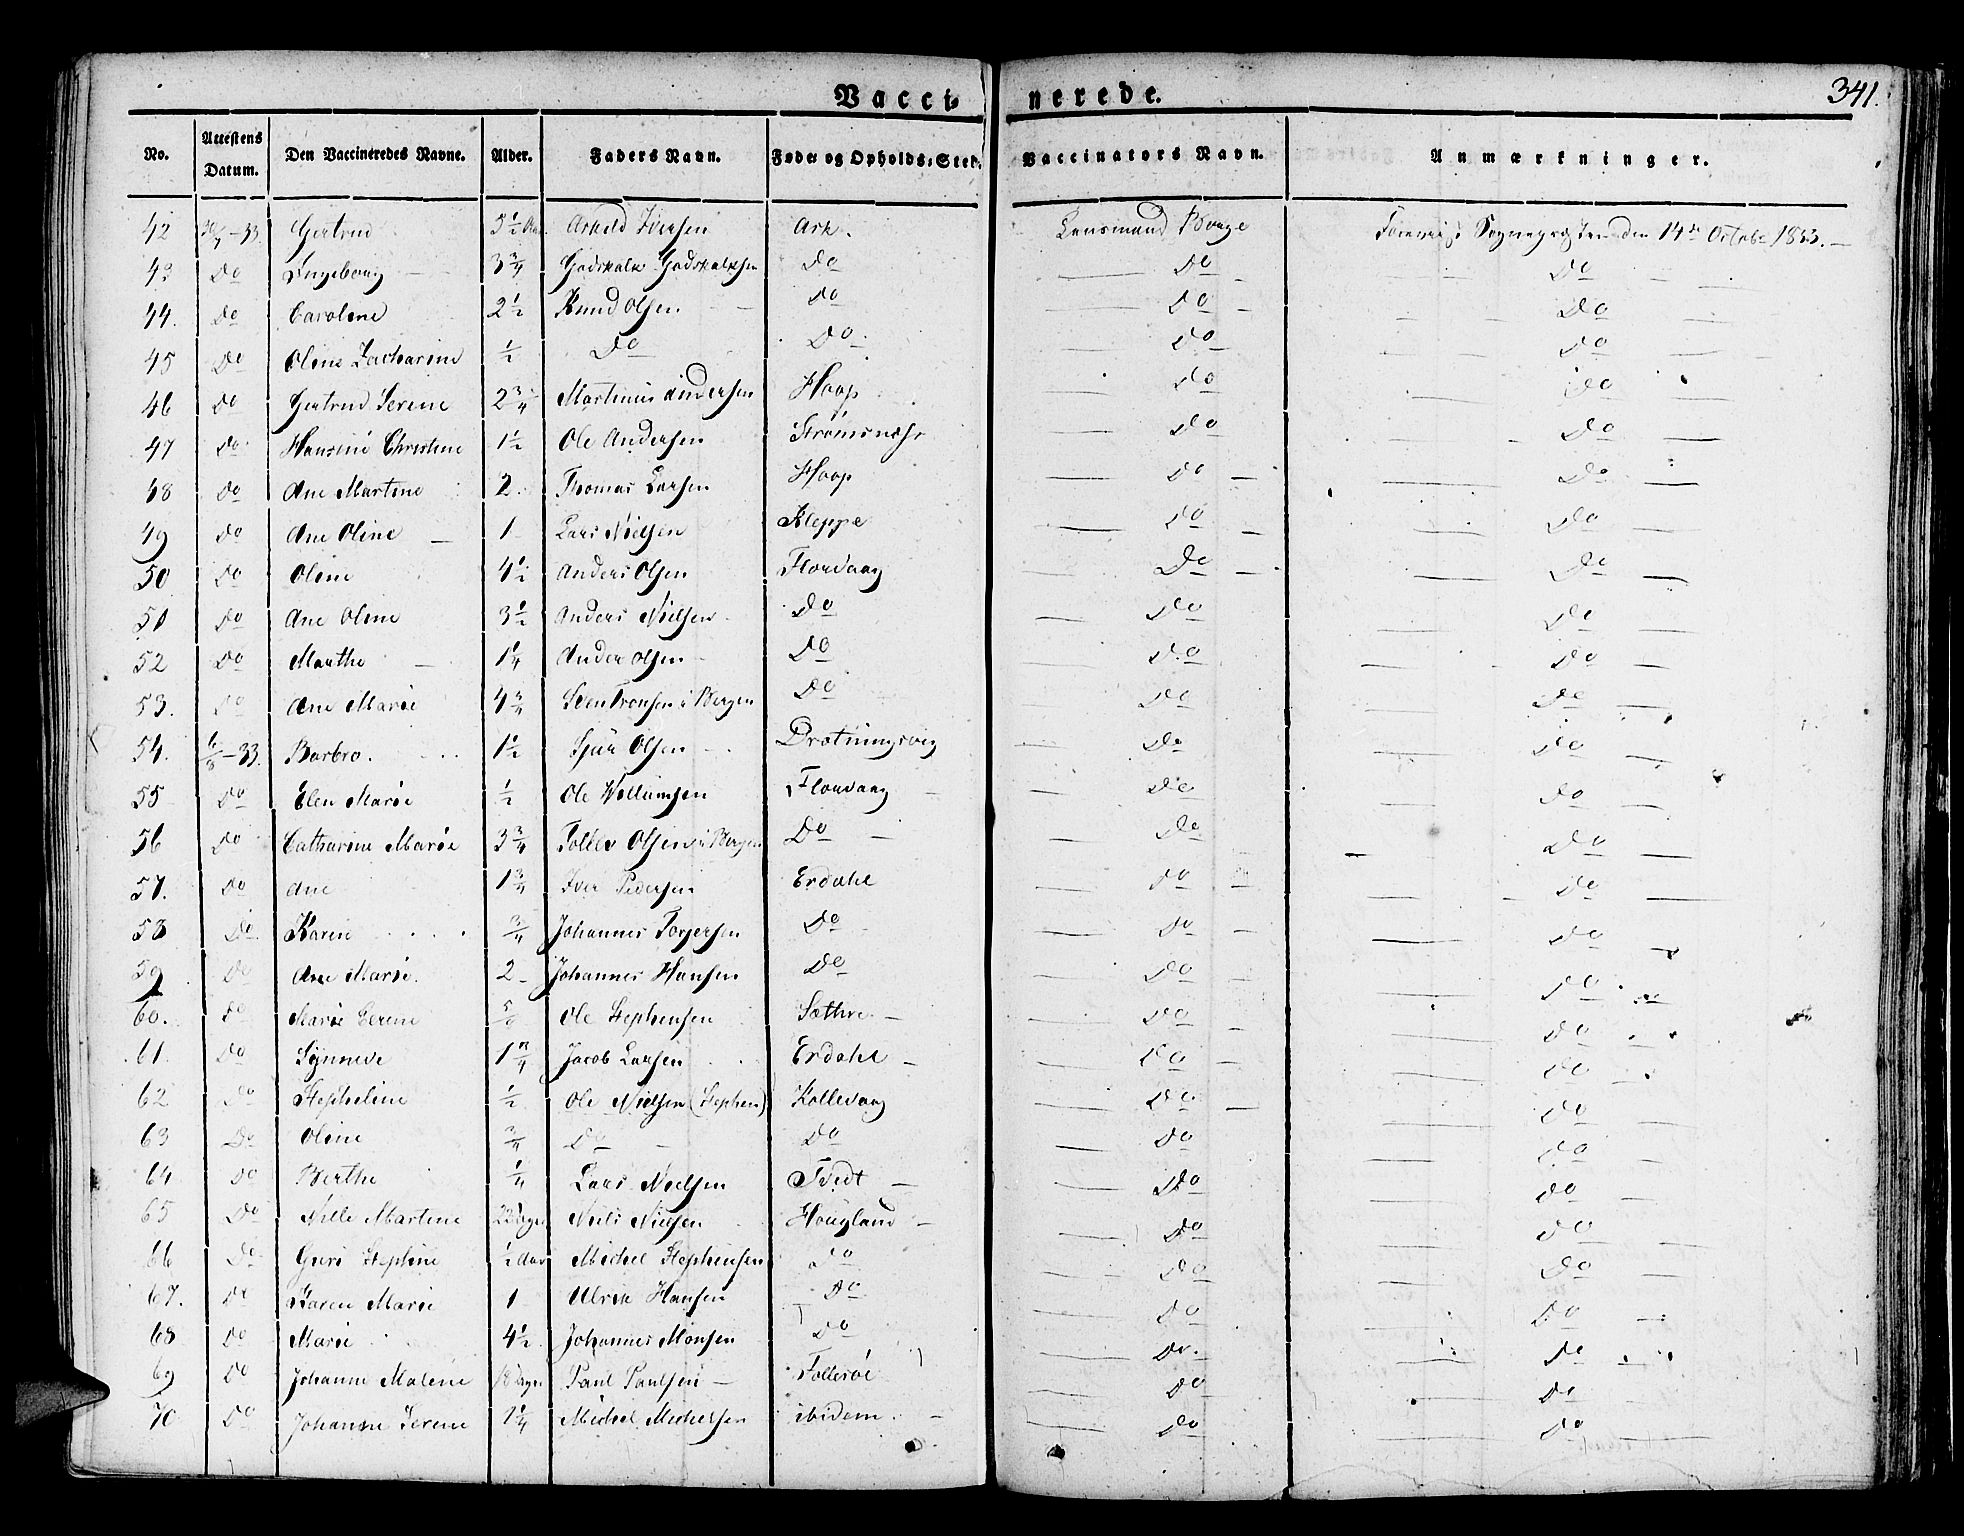 Vaccinerede. 341.
No. Attestens Datum. Den Vaccineredes Navne. Alder. Faders Navn. Føde og Opholds-Sted. Vaccinators Navn. Anmærkninger.
42 30/7-33. Gertrud 5½ Aar Iversen Ask. Lensmand Sognepræsten den 14de Octobr 1833.
43 Do Ingeborg 3¾ Godskalk Godskalksen Do Do Do
44. Do Caroline 2½ Knud Olsen Do Do Do
45 Do Oline Zacharine ½ Do Do Do Do
46 Do Gertrud Serene 2¾ Martinus Andersen Hoop Do Do
47 Do Hansine Christine 1½ Ole Andersen Strømsnæss Do Do
48 Do Ane Martine 2. Thomas Larsen Hoop Do Do
49 Do Ane Oline 1 Lars Nielsen Kleppe Do Do
50 Do Oline 4½ Anders Olsen Florvaag Do Do
51 Do Ane Oline 3½ Anders Nielsen Do Do Do
52 Do Marthe 1¼ Anders Olsen Do Do Do
53. Do Ane Marie 4¾ i Bergen Do Do Do
54. 6/8-33. Barbro. 1½ Sjur Olsen Drotningsvig Do Do
55 Do Elen Marie ½ Ole Willumsen Florvaag Do Do
56 Do Catharine Marie 3¾ Toller Olsen i Bergen Do Do Do
57. Do Ane 1¾ Iver Pedersen Erdahl Do Do
58 Do Karen ¾ Johannes Torgersen Do Do Do
59 Do Ane Marie. 2 Johannes Hansen Do Do Do
60. Do Marie Serene Ole Stephensen Sæthre Do Do
61. Do Synneve 1¾ Jacob Larsen Erdahl Do Do
62 Do Stepheline ½ Ole Nielsen (Stephens) Kollevaag Do Do
63 Do Oline ¾ Do Do Do Do
64 Do Berthe ¼ Lars Nielsen Tvedt Do Do
65 Do Nille Martine Niels Nielsen Hougland Do Do
66 Do Guri Stephine ½ Aar Michel Stephensen Do Do Do
67. Do Karen Marie 1 Ulrik Hansen Do Do Do
68 Do Marie 4½ Johannes Monsen Do Do Do
69 Do Johanne Malene Paul Paulsen Follesøe Do Do
70 Do Johanne Serene 1¼ Michel Michelsen ibidem. Do Do